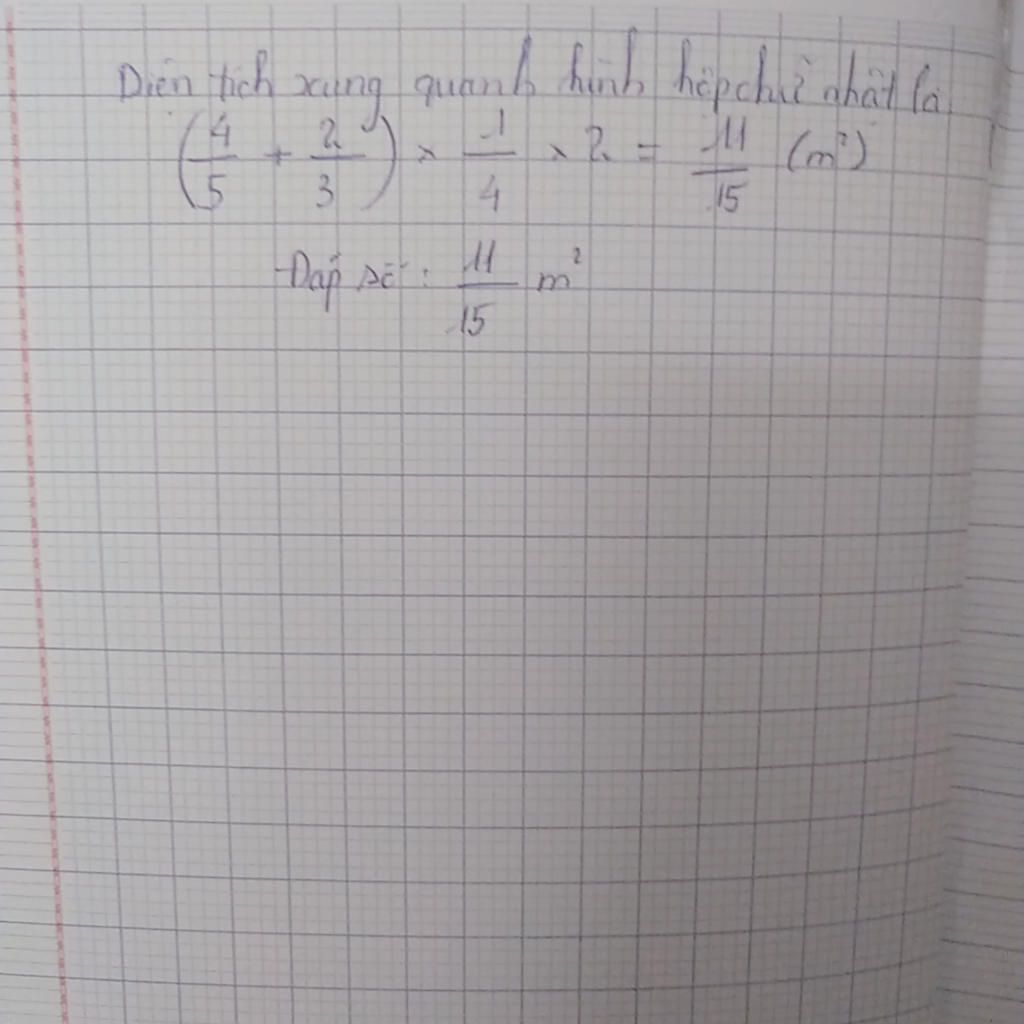 Diện tích xung quanh hình hộp chữ nhật là
(4/5 + 2/3) × 1/4 × 2 = 11/15 (m²)
Đáp số : 11/15 m²